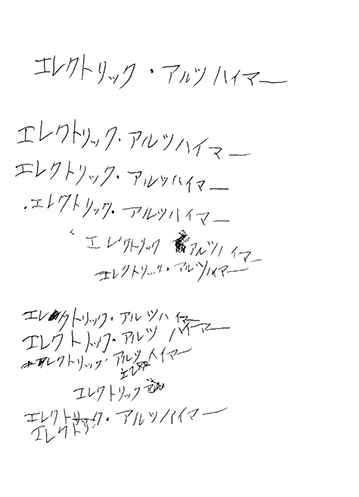 エレクトリック・アルツハイマー
エレクトリック・アルツハイマー
エレクトリック・アルツハイマー
エレクトリック・アルツハイマー
エレクトリック アルツハイマー
エレクトリック・アルツハイマー
エレクトリック・アルツハイマー
エレクトリック・アルツ ハイマー
エレクトリック・アルツハイマー
エレクトリック
エレクトリック・アルツハイマー
エレクトリ